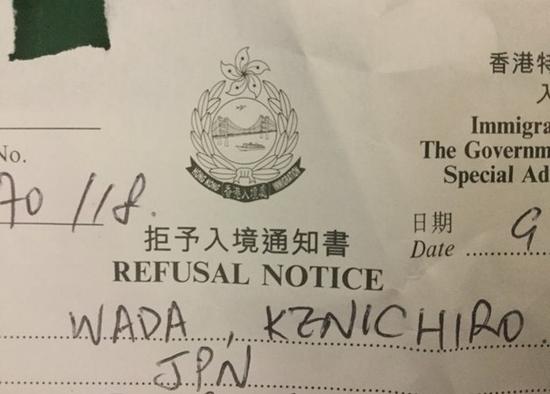 香港特
入
Immigra
The Governm
Special Ad
No.
70/18.
HONG KONG 香港入境處 IMMIGRATION
日期
Date 9
拒予入境通知書
REFUSAL NOTICE
WADA, KENICHIRO
JPN